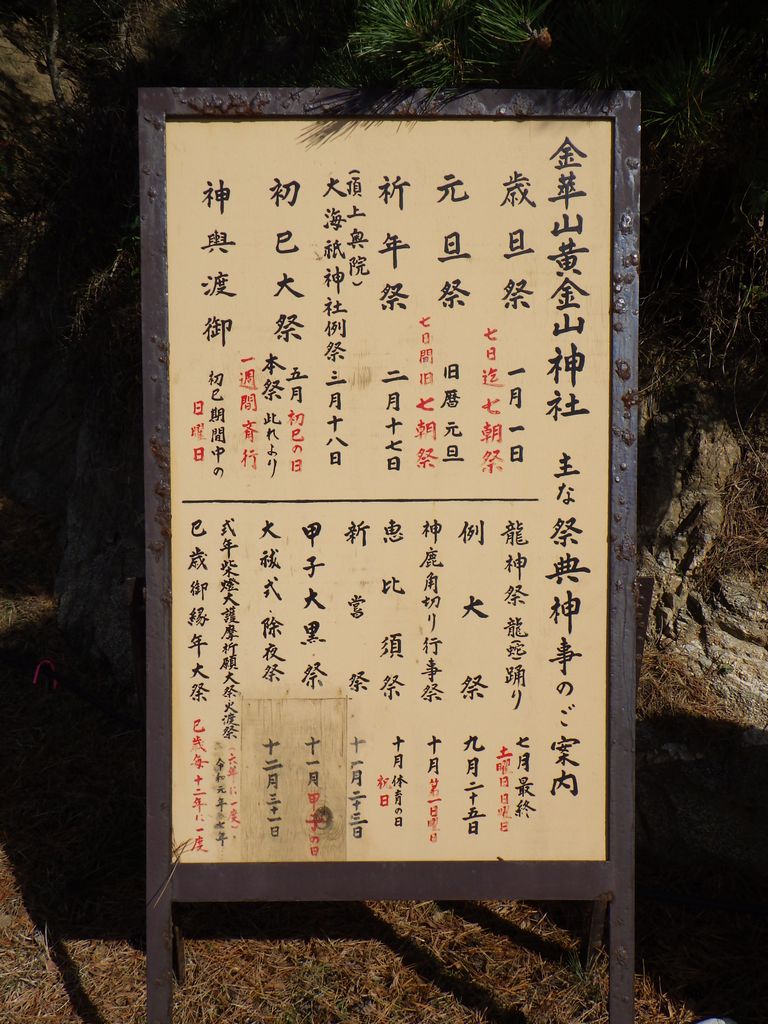 金華山黄金山神社 主な祭典神事のご案内
歳旦祭 一月一日
七日迄七朝祭
元旦祭 旧暦元旦
七日間旧七朝祭
祈年祭 二月十七日
(頂上奥院)
大海祇神社例祭 三月十八日
初巳大祭 五月初巳の日
本祭此れより
一週間斉行
神輿渡御 初巳期間中の
日曜日
龍神祭 龍(蛇)踊り 七月最終
土曜日日曜日
例大祭 九月二十五日
神鹿角切り行事祭 十月第一日曜日
恵比須祭 十月体育の日
祝日
新嘗祭 十一月二十三日
甲子大黒祭 十一月甲子の日
大祓式・除夜祭 十二月三十一日
式年柴燈大護摩祈願大祭火渡祭 (六年に一度)
令和元年 七年
巳歳御縁年大祭 巳歳毎十二年に一度